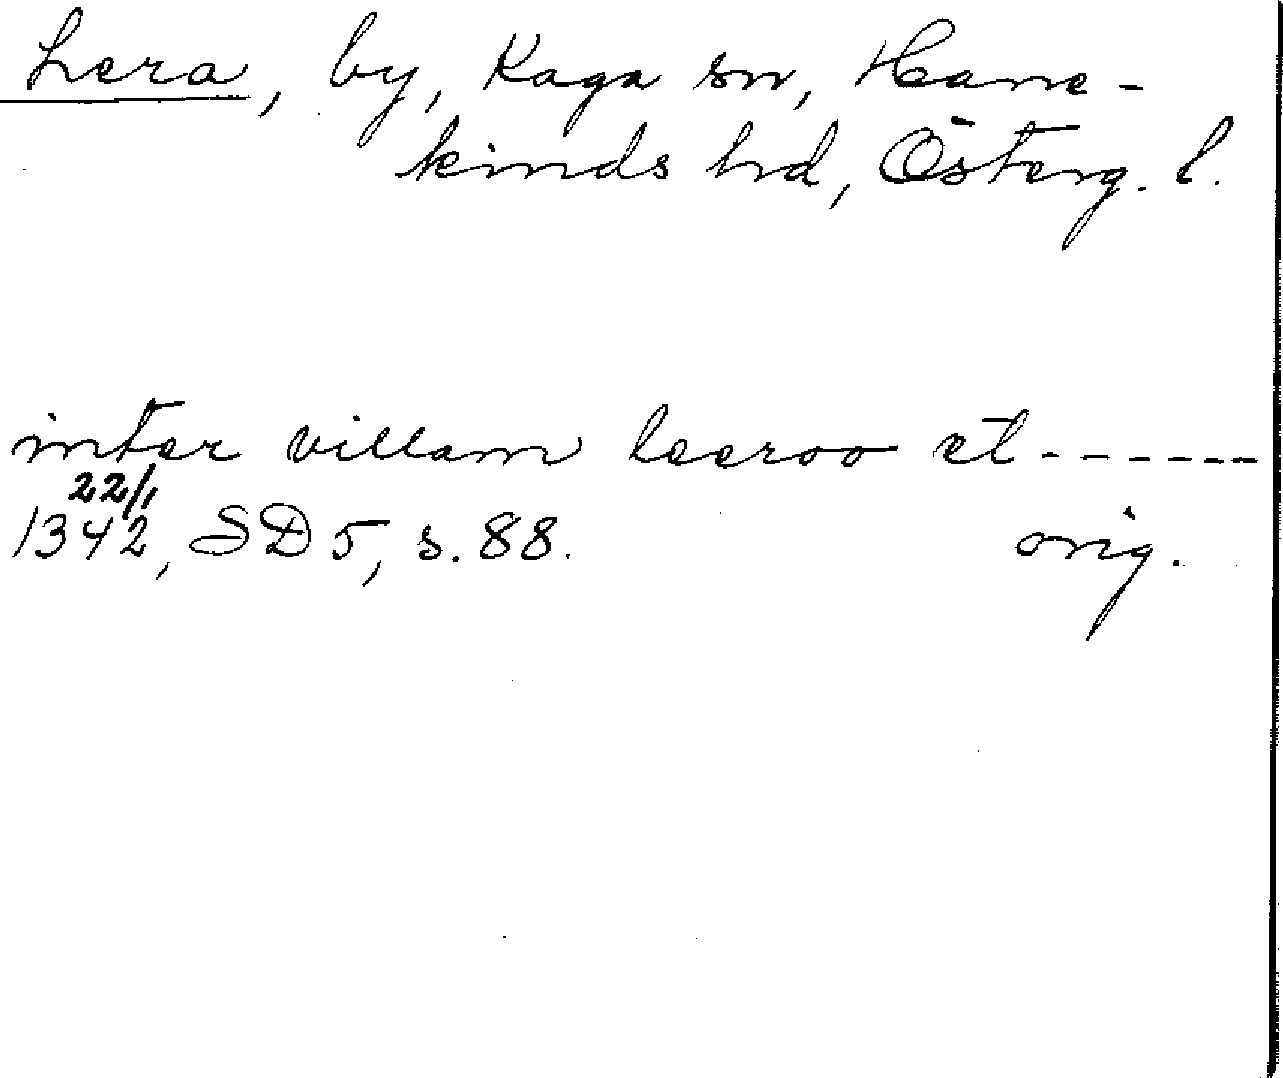 Lera, by, Kaga sn, Hane-
kinds hd, Österg. l.
inter villam leeroo et ------
22/1
1342, SD 5, s. 88. orig.